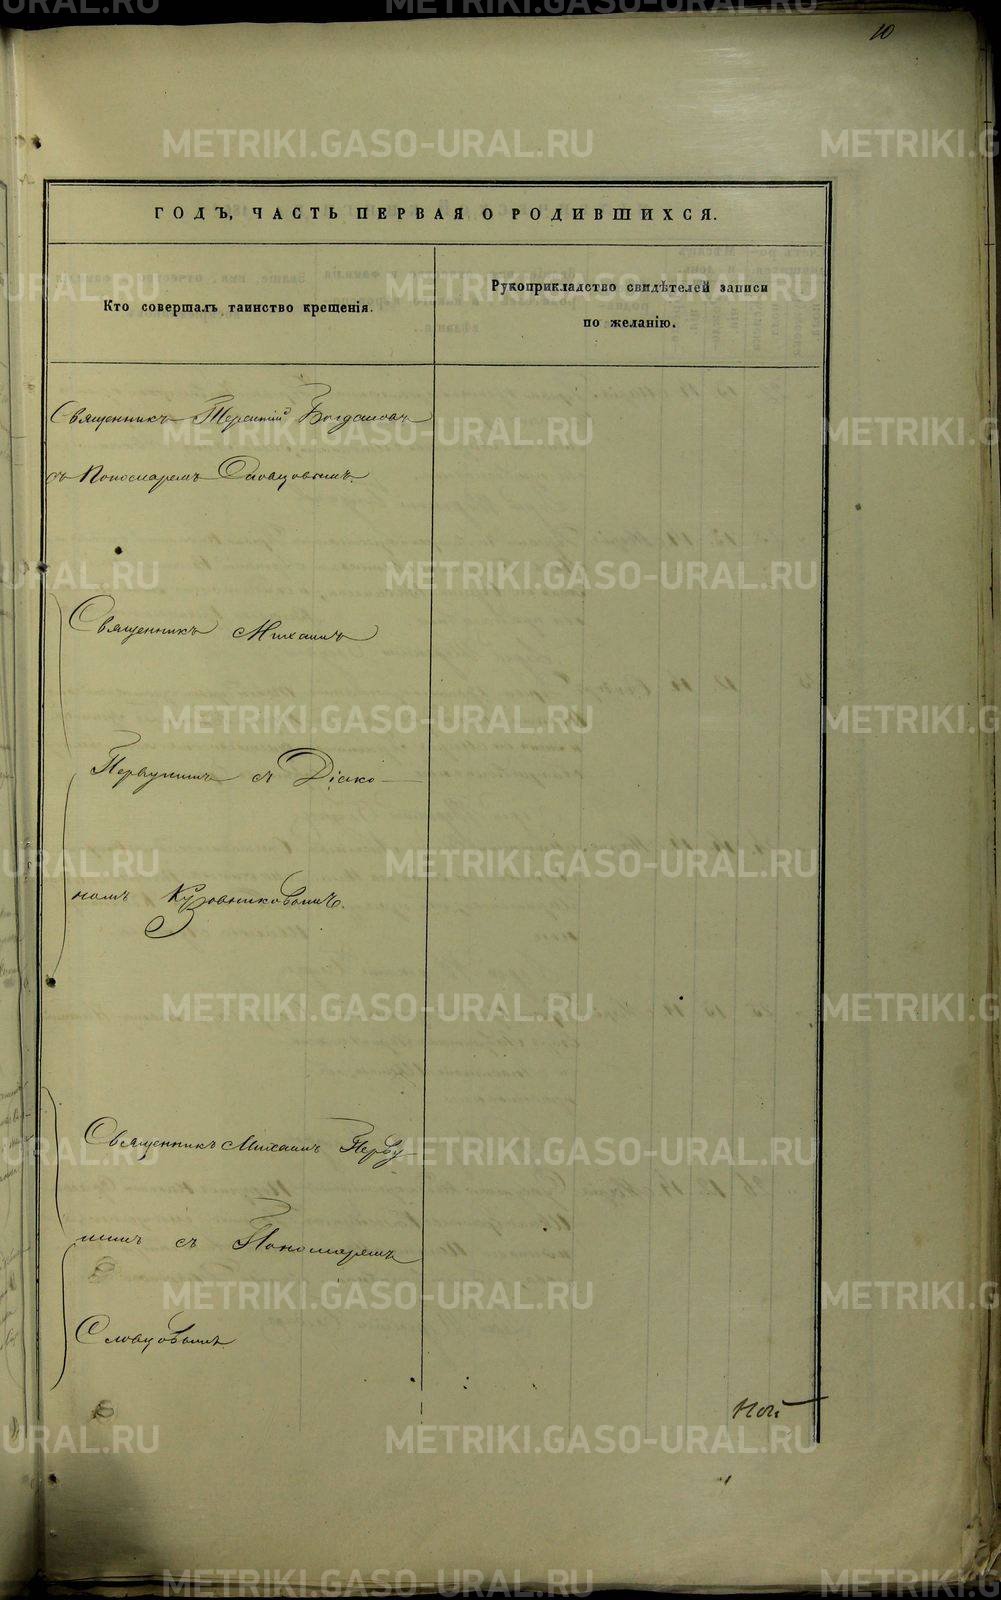 10
ГОДЪ, ЧАСТЬ ПЕРВАЯ О РОДИВШИХСЯ.
Кто совершалъ таинство крещенія.
Рукоприкладство свидѣтелей записи
по желанію.
Священникъ Терентій Богдановъ
съ Пономаремъ Словцовымъ.
Священникъ Михаилъ
Первушинъ съ Діако-
номъ Кузовниковымъ.
Священникъ Михаилъ Перву-
шинъ съ Пономаремъ
Словцовымъ
METRIKI.GASO-URAL.RU